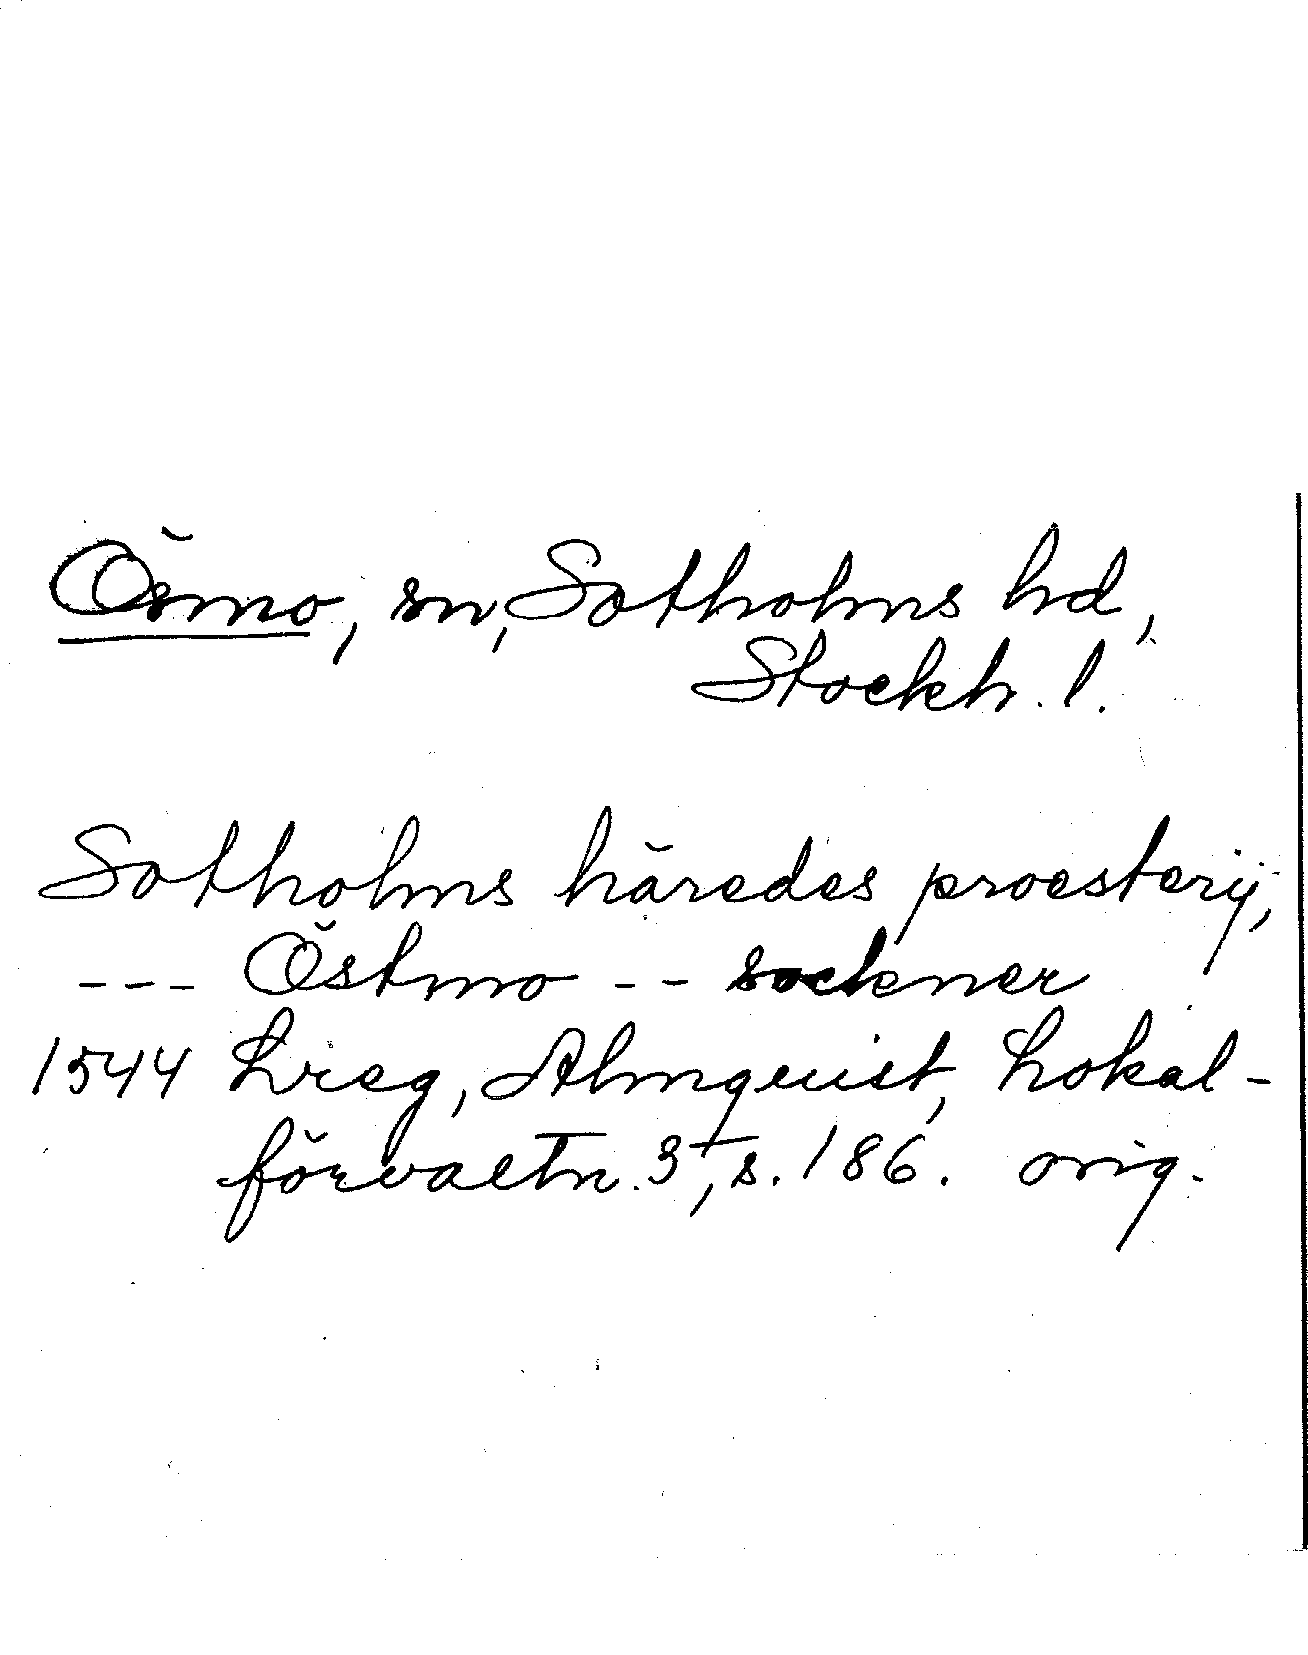 Ösmo, sn, Sotholms hd,
Stockh. l.
Sotholms häredes proesterij,
--- Östmo -- sockner
1544 Lreg, Almquist, Lokal-
förvaltn. 3, s. 186. orig.